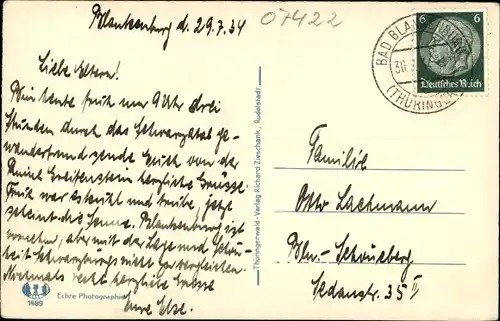 Blankenburg d. 29.7.34
07422
Liebe Eltern!
Bin heute früh um 9 Uhr drei
Stunden durch das Schwarzatal ge-
wandert und sende Euch von der
Ruine Greifenstein herzliche Grüsse.
Früh war es kühl und trübe, jetzt
scheint die Sonne. Blankenburg ist
vornehm, aber mit der Lage und Schön-
heit Schwarzburgs nicht zu vergleichen.
Nochmals recht herzliche Grüsse
Eure Else.
1489
Echte Photographie
Thüringerwald-Verlag Richard Zieschank, Rudolstadt
BAD BLANKENBURG
30.
(THÜRINGER
6 6
Deutsches Reich
Familie
Otto Lachmann
Bln.-Schöneberg
Sedanstr. 35 II